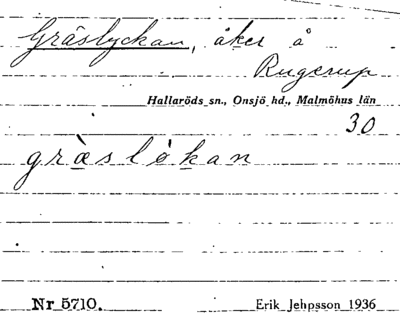 Gräslyckan, åker å
Rugerup
Hallaröds sn., Onsjö hd., Malmöhus län
30
græ̀slø̀kan
Nr 5710.
Erik Jehpsson 1936